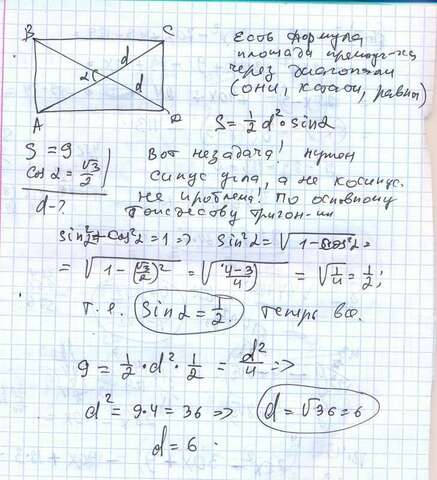 B
C
d
α
d
A
D
Есть формула
площади прямоуг-ка
через диагонали
(они, кстати, равны)
S = 1/2 d² · sin α
S = 9
cos α = √3/2
d - ?
Вот незадача! нужен
синус угла, а не косинус.
Не проблема! По основному
тождеству тригон-ии
sin²α + cos²α = 1 => sin²α = √(1 - cos²α) =
= √(1 - (√3/2)²) = √((4-3)/4) = √(1/4) = 1/2;
т.е. sin α = 1/2. Теперь все.
9 = 1/2 · d² · 1/2 = d²/4 =>
d² = 9·4 = 36 => d = √36 = 6
d = 6